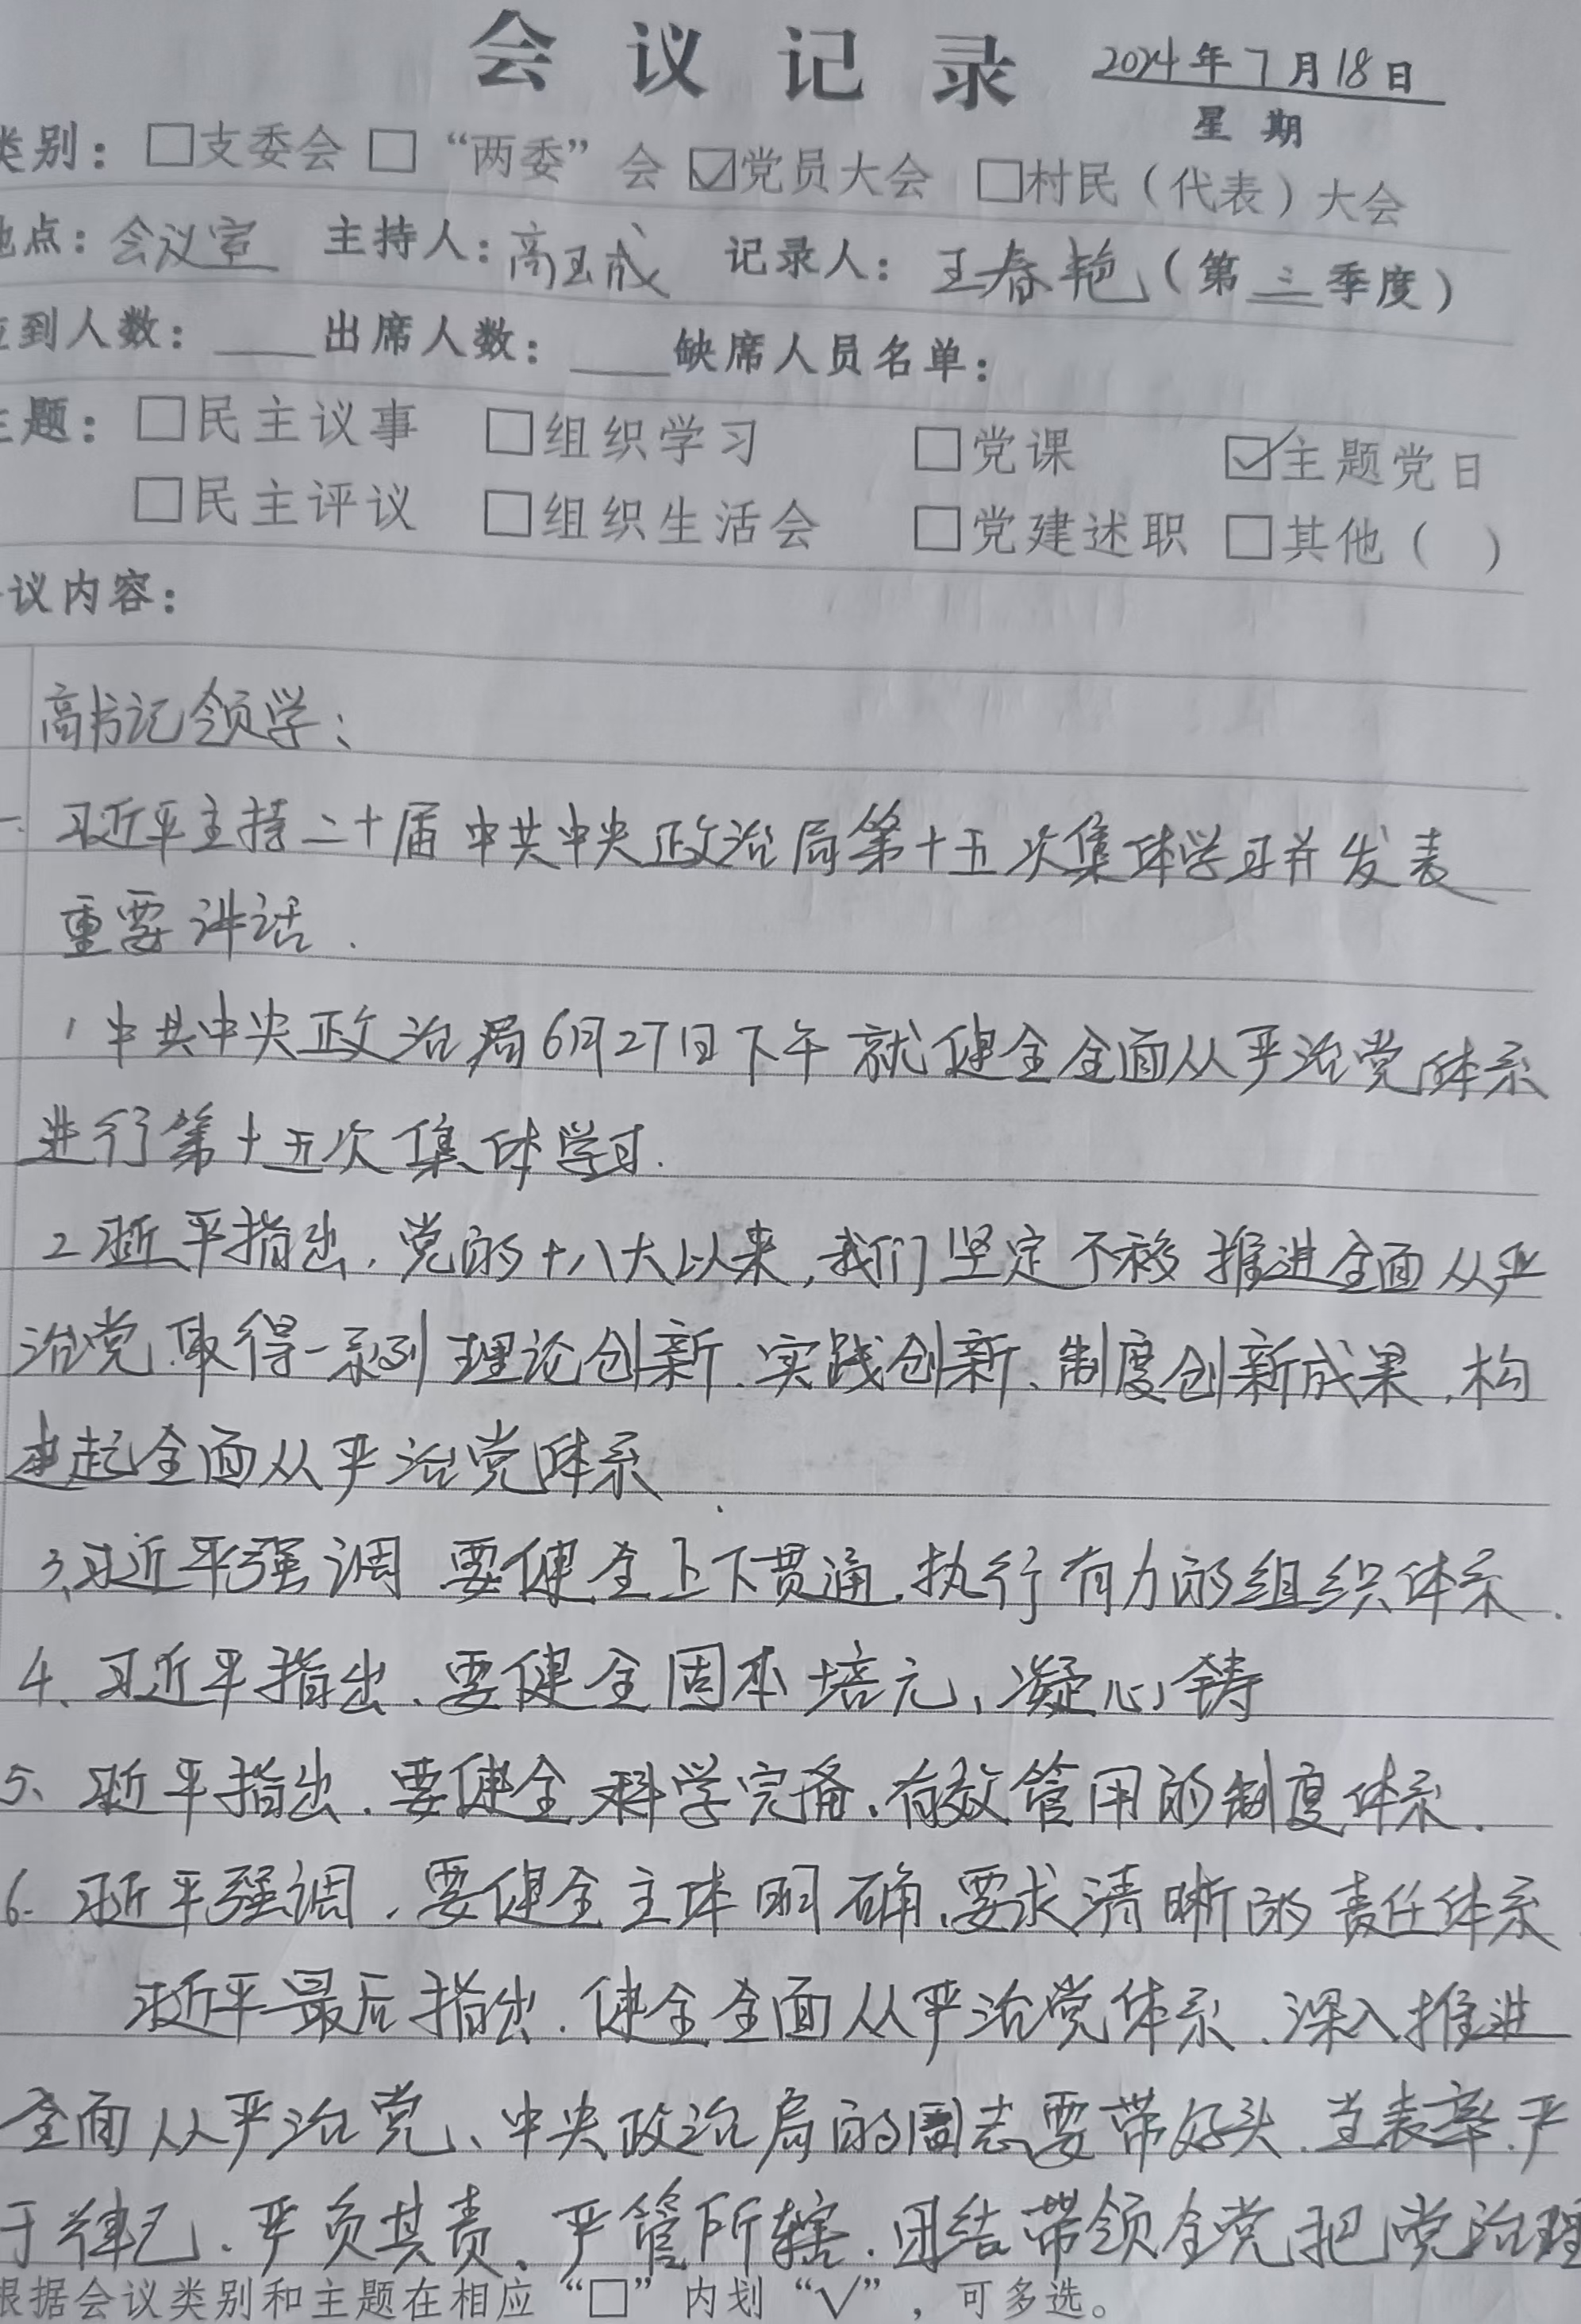 会议记录 2024年7月18日
星期
类别：□支委会 □“两委”会 ☑党员大会 □村民（代表）大会
地点：会议室 主持人：高玉成 记录人：王春艳（第三季度）
应到人数：____出席人数：____缺席人员名单：
主题：□民主议事 □组织学习 □党课 ☑主题党日
□民主评议 □组织生活会 □党建述职 □其他（ ）
议内容：
高书记领学：
一. 习近平主持二十届中共中央政治局第十五次集体学习并发表
重要讲话.
1 中共中央政治局6月27日下午就健全全面从严治党体系
进行第十五次集体学习.
2 习近平指出，党的十八大以来，我们坚定不移推进全面从严
治党.取得一系列理论创新、实践创新、制度创新成果，构
建起全面从严治党体系.
3、习近平强调 要健全上下贯通、执行有力的组织体系.
4、习近平指出、要健全固本培元、凝心铸
5、习近平指出、要健全科学完备、有效管用的制度体系.
6. 习近平强调，要健全主体明确、要求清晰的责任体系
习近平最后指出.健全全面从严治党体系、深入推进
全面从严治党、中央政治局的同志要带好头、当表率.严
于律己、严负其责、严管所辖.团结带领全党把党治理
根据会议类别和主题在相应“□”内划“√”，可多选。